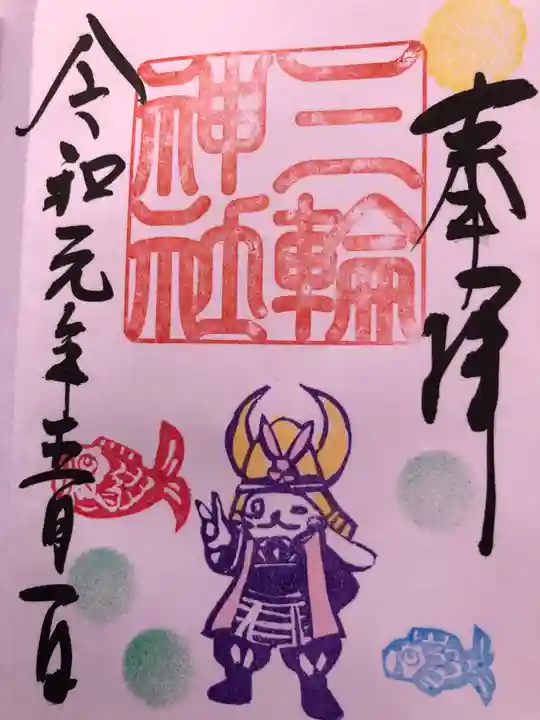 奉拝
三輪
神社
令和元年五月一日